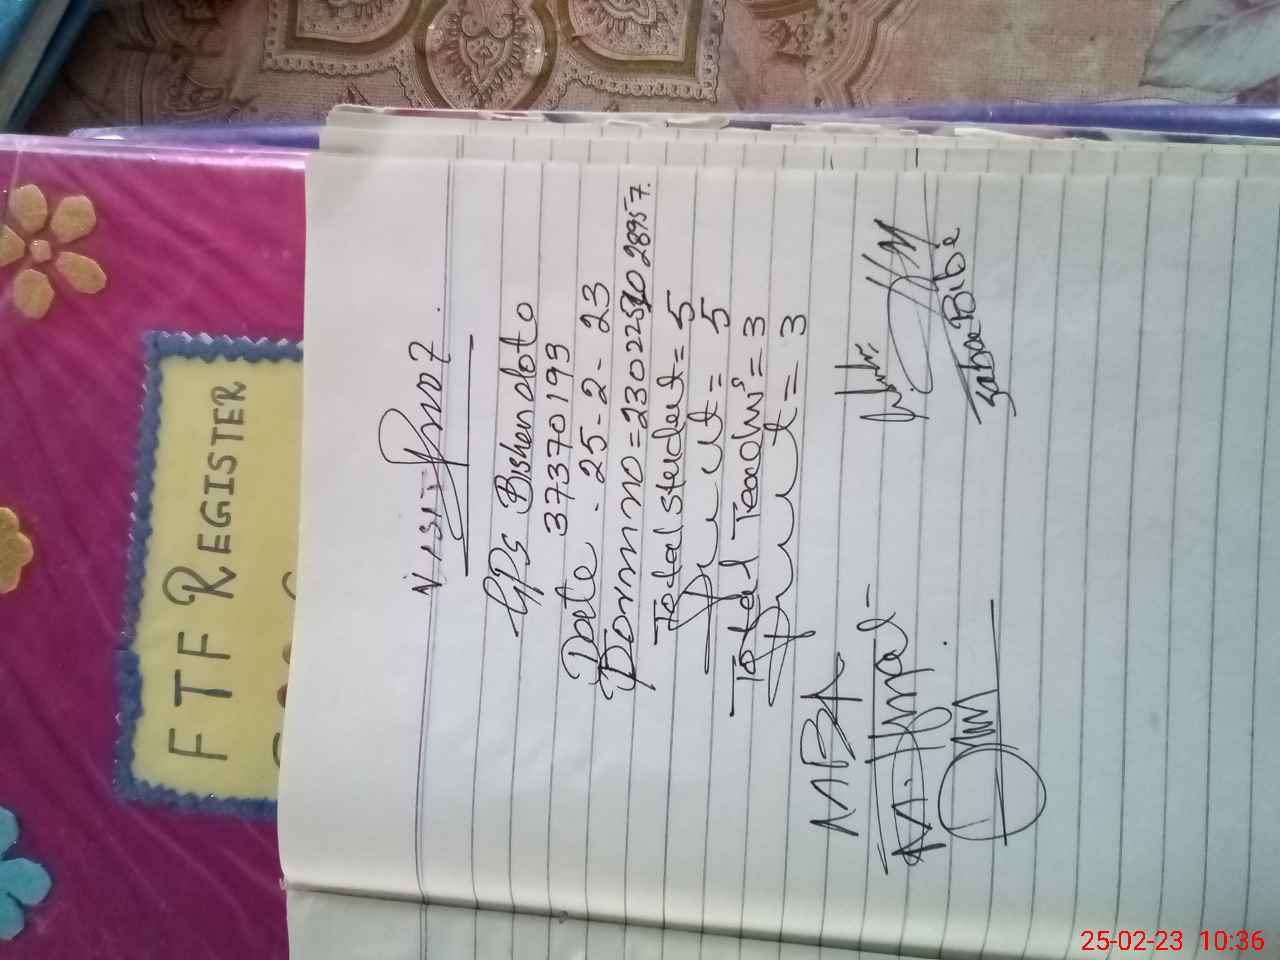 FTF REGISTER
Visit Proof
GPS Bishendoto
37370199
Date . 25-2-23
Total student = 5
Present = 5
Total Teachers = 3
Present = 3
MBA
M. Ajmal
Saba Bibi
25-02-23 10:36